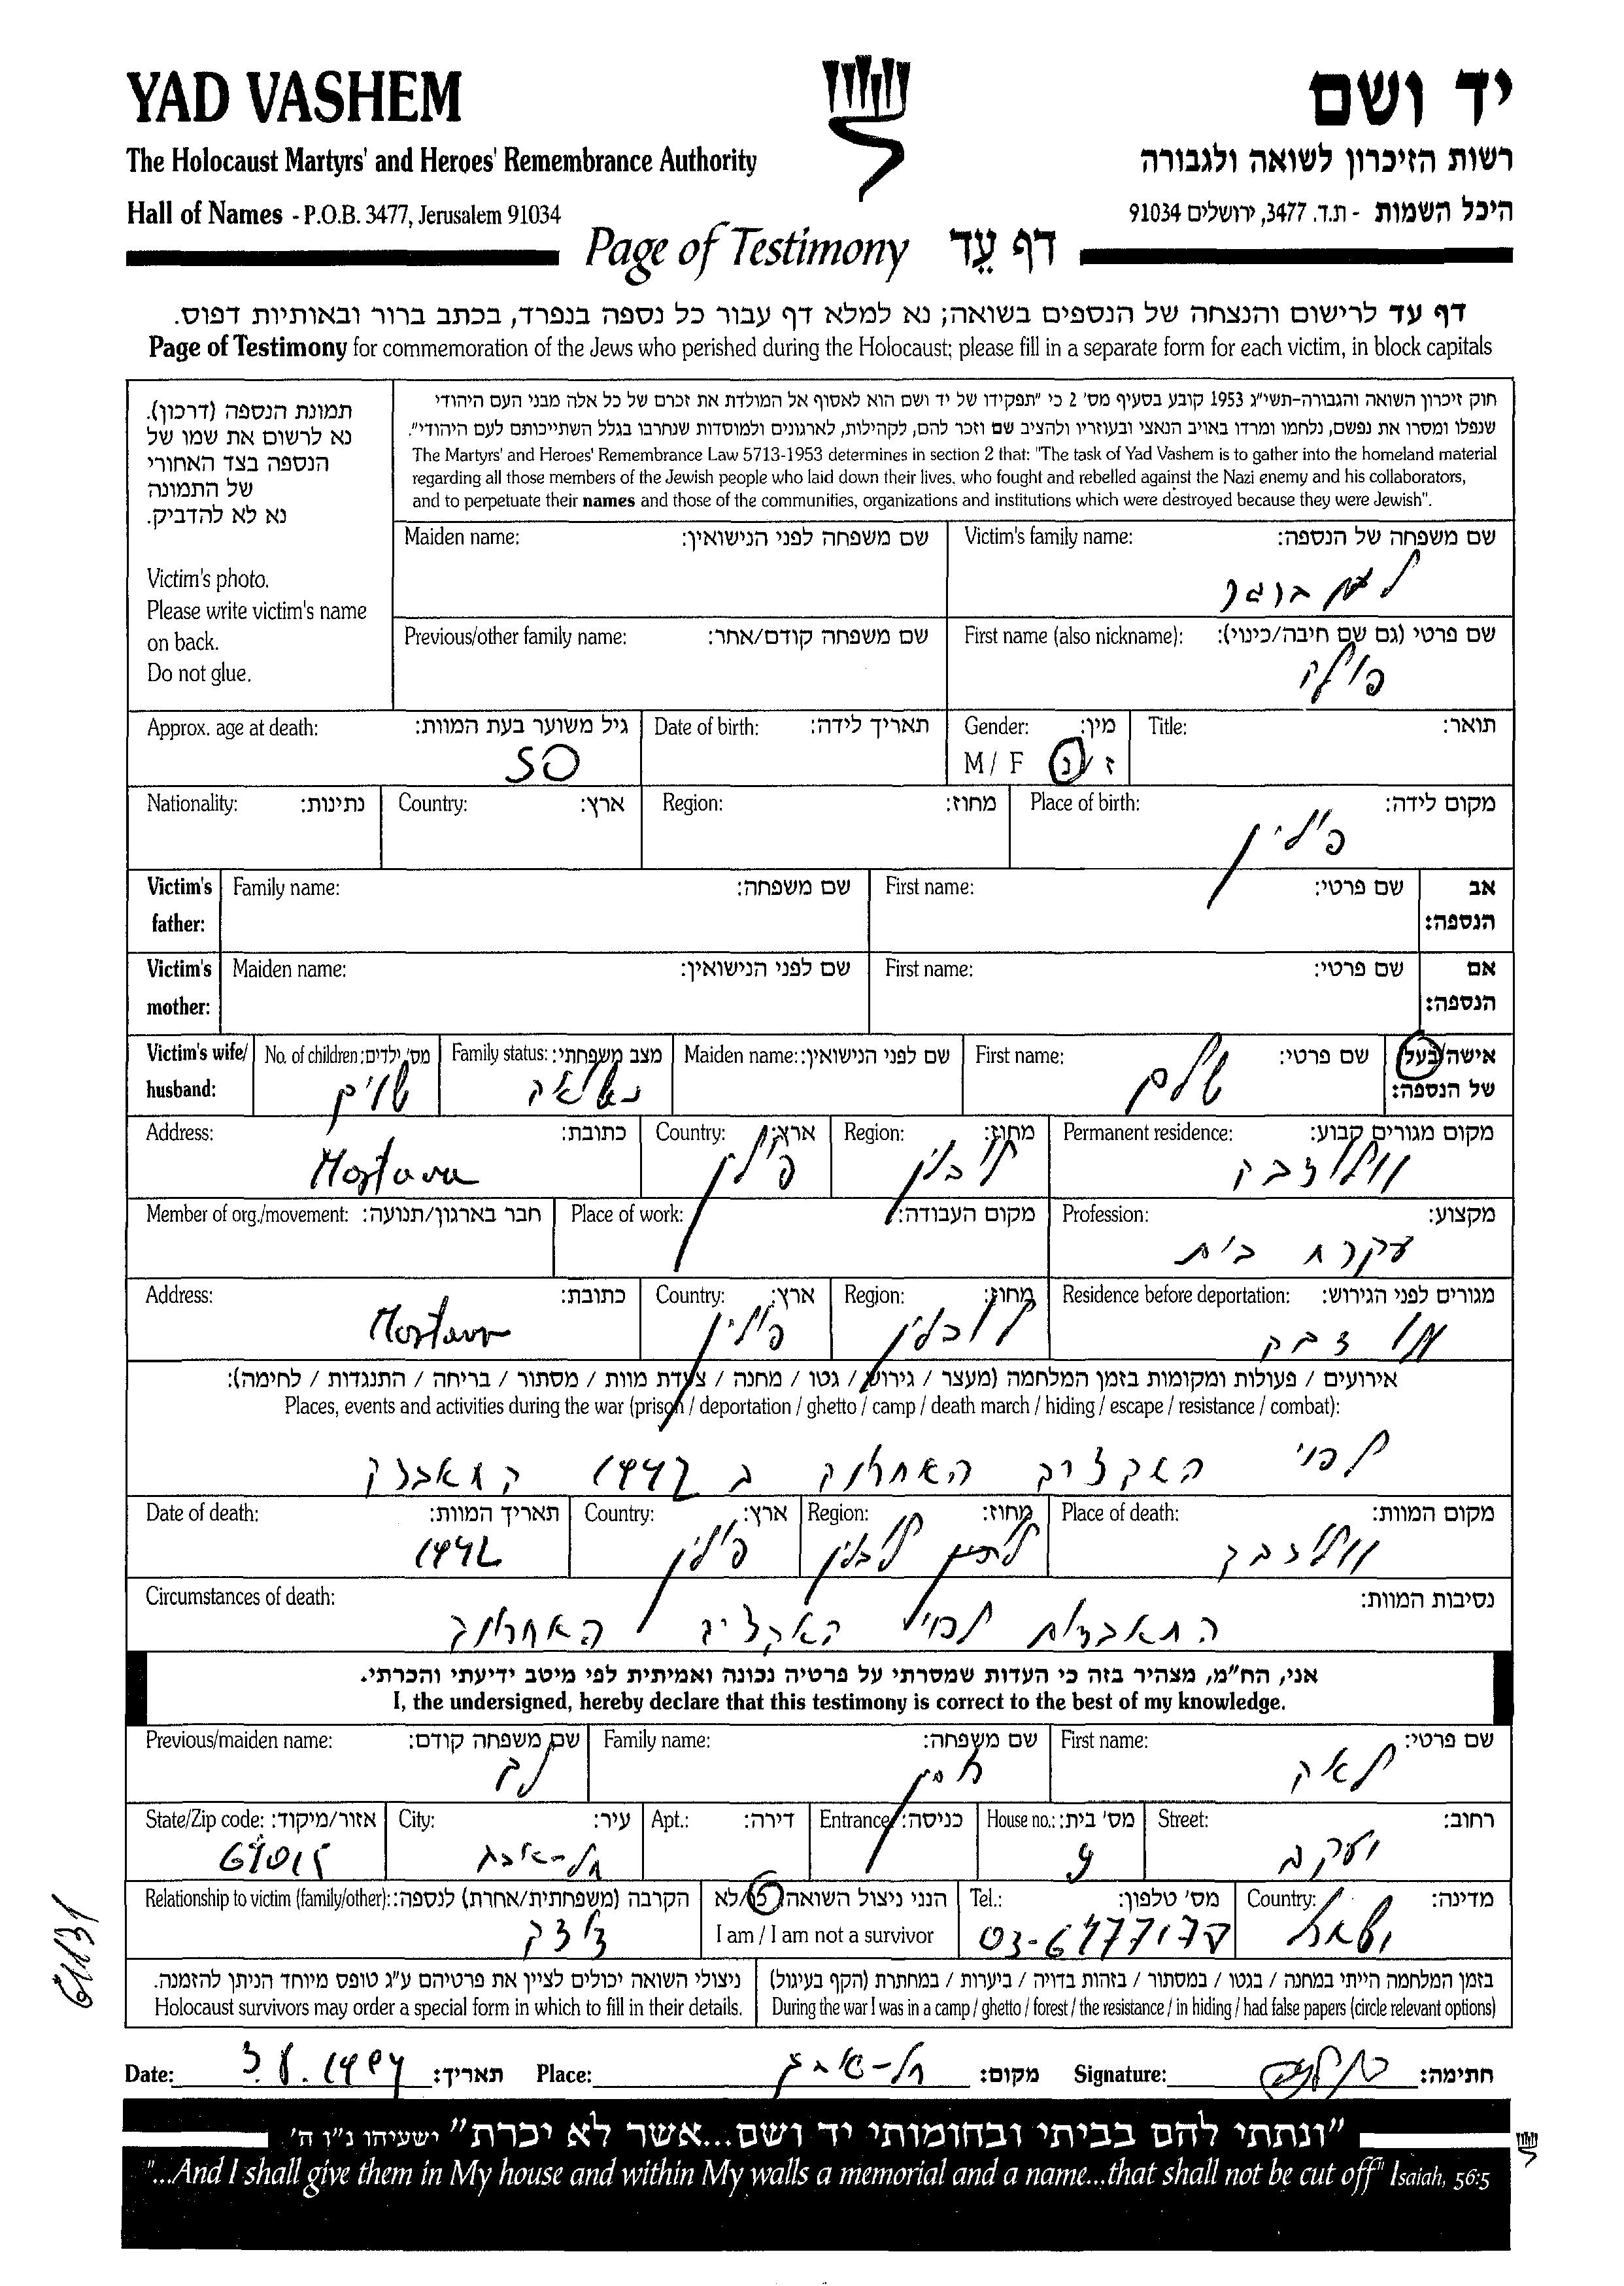 YAD VASHEM
יד ושם
The Holocaust Martyrs' and Heroes' Remembrance Authority
רשות הזיכרון לשואה ולגבורה
Hall of Names - P.O.B. 3477, Jerusalem 91034
היכל השמות - ת.ד. 3477, ירושלים 91034
Page of Testimony דף עֵד
דף עד לרישום והנצחה של הנספים בשואה; נא למלא דף עבור כל נספה בנפרד, בכתב ברור ובאותיות דפוס.
Page of Testimony for commemoration of the Jews who perished during the Holocaust; please fill in a separate form for each victim, in block capitals
תמונת הנספה (דרכון).
נא לרשום את שמו של
הנספה בצד האחורי
של התמונה
נא לא להדביק.
Victim's photo.
Please write victim's name
on back.
Do not glue.
חוק זיכרון השואה והגבורה-תשי"ג 1953 קובע בסעיף מס' 2 כי "תפקידו של יד ושם הוא לאסוף אל המולדת את זכרם של כל אלה מבני העם היהודי
שנפלו ומסרו את נפשם, נלחמו ומרדו באויב הנאצי ובעוזריו ולהציב שם וזכר להם, לקהילות, לארגונים ולמוסדות שנחרבו בגלל השתייכותם לעם היהודי".
The Martyrs' and Heroes' Remembrance Law 5713-1953 determines in section 2 that: "The task of Yad Vashem is to gather into the homeland material
regarding all those members of the Jewish people who laid down their lives, who fought and rebelled against the Nazi enemy and his collaborators,
and to perpetuate their names and those of the communities, organizations and institutions which were destroyed because they were Jewish".
Maiden name: שם משפחה לפני הנישואין:
Victim's family name: שם משפחה של הנספה:
Previous/other family name: שם משפחה קודם/אחר:
First name (also nickname): שם פרטי (גם שם חיבה/כינוי):
Approx. age at death: גיל משוער בעת המוות:
50
Date of birth: תאריך לידה:
Gender: מין:
M / F ז / נ
Title: תואר:
Nationality: נתינות:
Country: ארץ:
Region: מחוז:
Place of birth: מקום לידה:
פולין
Victim's father: Family name: שם משפחה: First name: שם פרטי: אב הנספה:
Victim's mother: Maiden name: שם לפני הנישואין: First name: שם פרטי: אם הנספה:
Victim's wife/ husband: No. of children: מס' ילדים: Family status: מצב משפחתי: Maiden name: שם לפני הנישואין: First name: שם פרטי: אישה/בעל של הנספה:
שנים נשואה שלם
Address: כתובת: Country: ארץ: Region: מחוז: Permanent residence: מקום מגורים קבוע:
Mostowa פולין לובלין
Member of org./movement: חבר בארגון/תנועה: Place of work: מקום העבודה: Profession: מקצוע:
עקרת בית
Address: כתובת: Country: ארץ: Region: מחוז: Residence before deportation: מגורים לפני הגירוש:
Mostowa פולין לובלין
אירועים / פעולות ומקומות בזמן המלחמה (מעצר / גירוש / גטו / מחנה / צעדת מוות / מסתור / בריחה / התנגדות / לחימה):
Places, events and activities during the war (prison / deportation / ghetto / camp / death march / hiding / escape / resistance / combat):
לפני האקציה האחרונה ב 1942 התאבדה
Date of death: תאריך המוות: Country: ארץ: Region: מחוז: Place of death: מקום המוות:
1942 פולין לובלין
Circumstances of death: נסיבות המוות:
התאבדות לפני האקציה האחרונה
אני, הח"מ, מצהיר בזה כי העדות שמסרתי על פרטיה נכונה ואמיתית לפי מיטב ידיעתי והכרתי.
I, the undersigned, hereby declare that this testimony is correct to the best of my knowledge.
Previous/maiden name: שם משפחה קודם: Family name: שם משפחה: First name: שם פרטי:
לאה
State/Zip code: אזור/מיקוד: City: עיר: Apt.: דירה: Entrance: כניסה: House no.: מס' בית: Street: רחוב:
תל-אביב
Relationship to victim (family/other): הקרבה (משפחתית/אחרת) לנספה: הנני ניצול השואה כן/לא Tel.: מס' טלפון: Country: מדינה:
I am / I am not a survivor
דודה ישראל
ניצולי השואה יכולים לציין את פרטיהם ע"ג טופס מיוחד הניתן להזמנה.
Holocaust survivors may order a special form in which to fill in their details.
בזמן המלחמה הייתי במחנה / בגטו / במסתור / בזהות בדויה / ביערות / במחתרת (הקף בעיגול)
During the war I was in a camp / ghetto / forest / the resistance / in hiding / had false papers (circle relevant options)
Date: תאריך: Place: תל-אביב מקום: Signature: חתימה:
"ונתתי להם בביתי ובחומותי יד ושם...אשר לא יכרת" ישעיהו נ"ו ה'
"...And I shall give them in My house and within My walls a memorial and a name...that shall not be cut off" Isaiah, 56:5